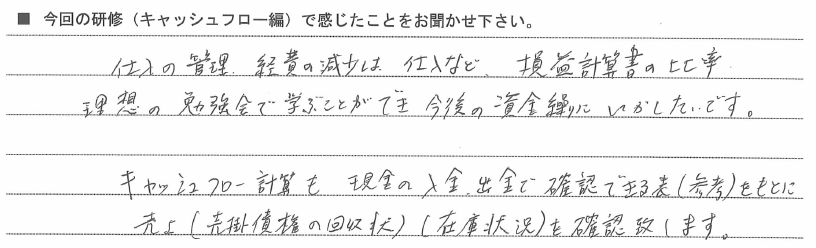 ■ 今回の研修（キャッシュフロー編）で感じたことをお聞かせ下さい。
仕入の管理、経費の減少は 仕入など、損益計算書の比率
理想の勉強会で学ぶことができ 今後の資金繰りにいかしたいです。
キャッシュフロー計算も 現金の入金、出金で確認できる表（参考）をもとに
売上（売掛債権の回収状）（在庫状況）を確認致します。